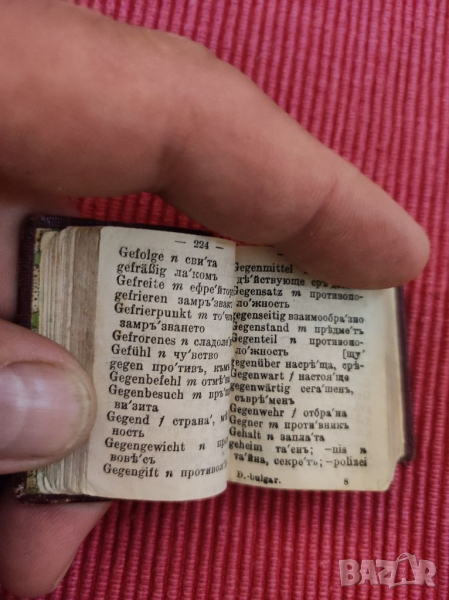 — 224 —
Gefolge n сви́та
gefräßig ла́комъ
Gefreite m ефре́йтор
gefrieren замръ́звак
Gefrierpunkt m то́ч
замръ́зването
Gefrorenes n сладол
Gefühl n чу́вство
gegen про́тивъ, къмъ
Gegenbefehl m отмѣ́
Gegenbesuch m
ви́зита
Gegend f страна́,
ность
Gegengewicht n
вовѣ́съ
Gegengift n противо
Gegenmittel n
дѣ́йствующе
Gegensatz m противопо-
ло́жность
gegenseitig взаимообра́зно
Gegenstand m прѣдме́тъ
Gegenteil n противопо-
ло́жность [щу́
gegenüber насрѣ́ща, срѣ-
Gegenwart f настоя́ще
gegenwärtig сега́шенъ,
съврѣ́менъ
Gegenwehr f отбра́на
Gegner m проти́вникъ
Gehalt n запла́та
geheim та́енъ; —nis n
та́йна, секре́тъ; —polizei
D.-bulgar. 8
ЗАХАР